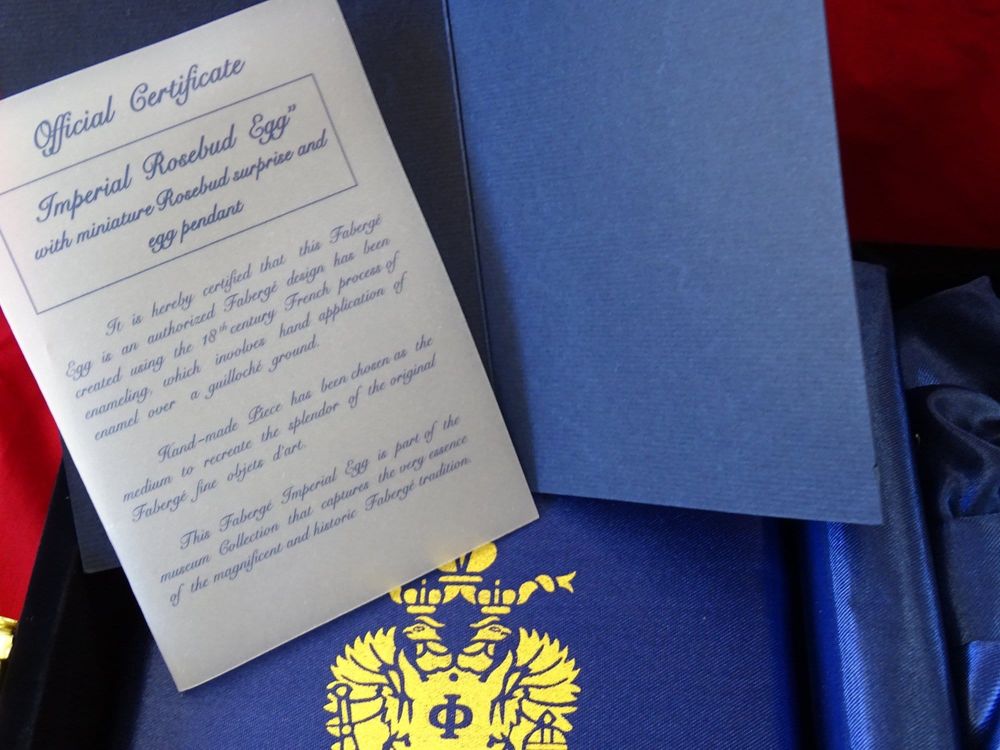 Official Certificate
Imperial Rosebud Egg"
with miniature Rosebud surprise and
egg pendant
It is hereby certified that this Fabergé
Egg is an authorized Fabergé design has been
created using the 18th century French process of
enameling, which inoolves hand application of
enamel over a guilloché ground.
Hand-made Piece has been chosen as the
medium to recreate the splendor of the original
Fabergé fine objets d'art.
This Fabergé Imperial Egg is part of the
museum Collection that captures the very essence
of the magnificent and historic Fabergé tradition.
Ф